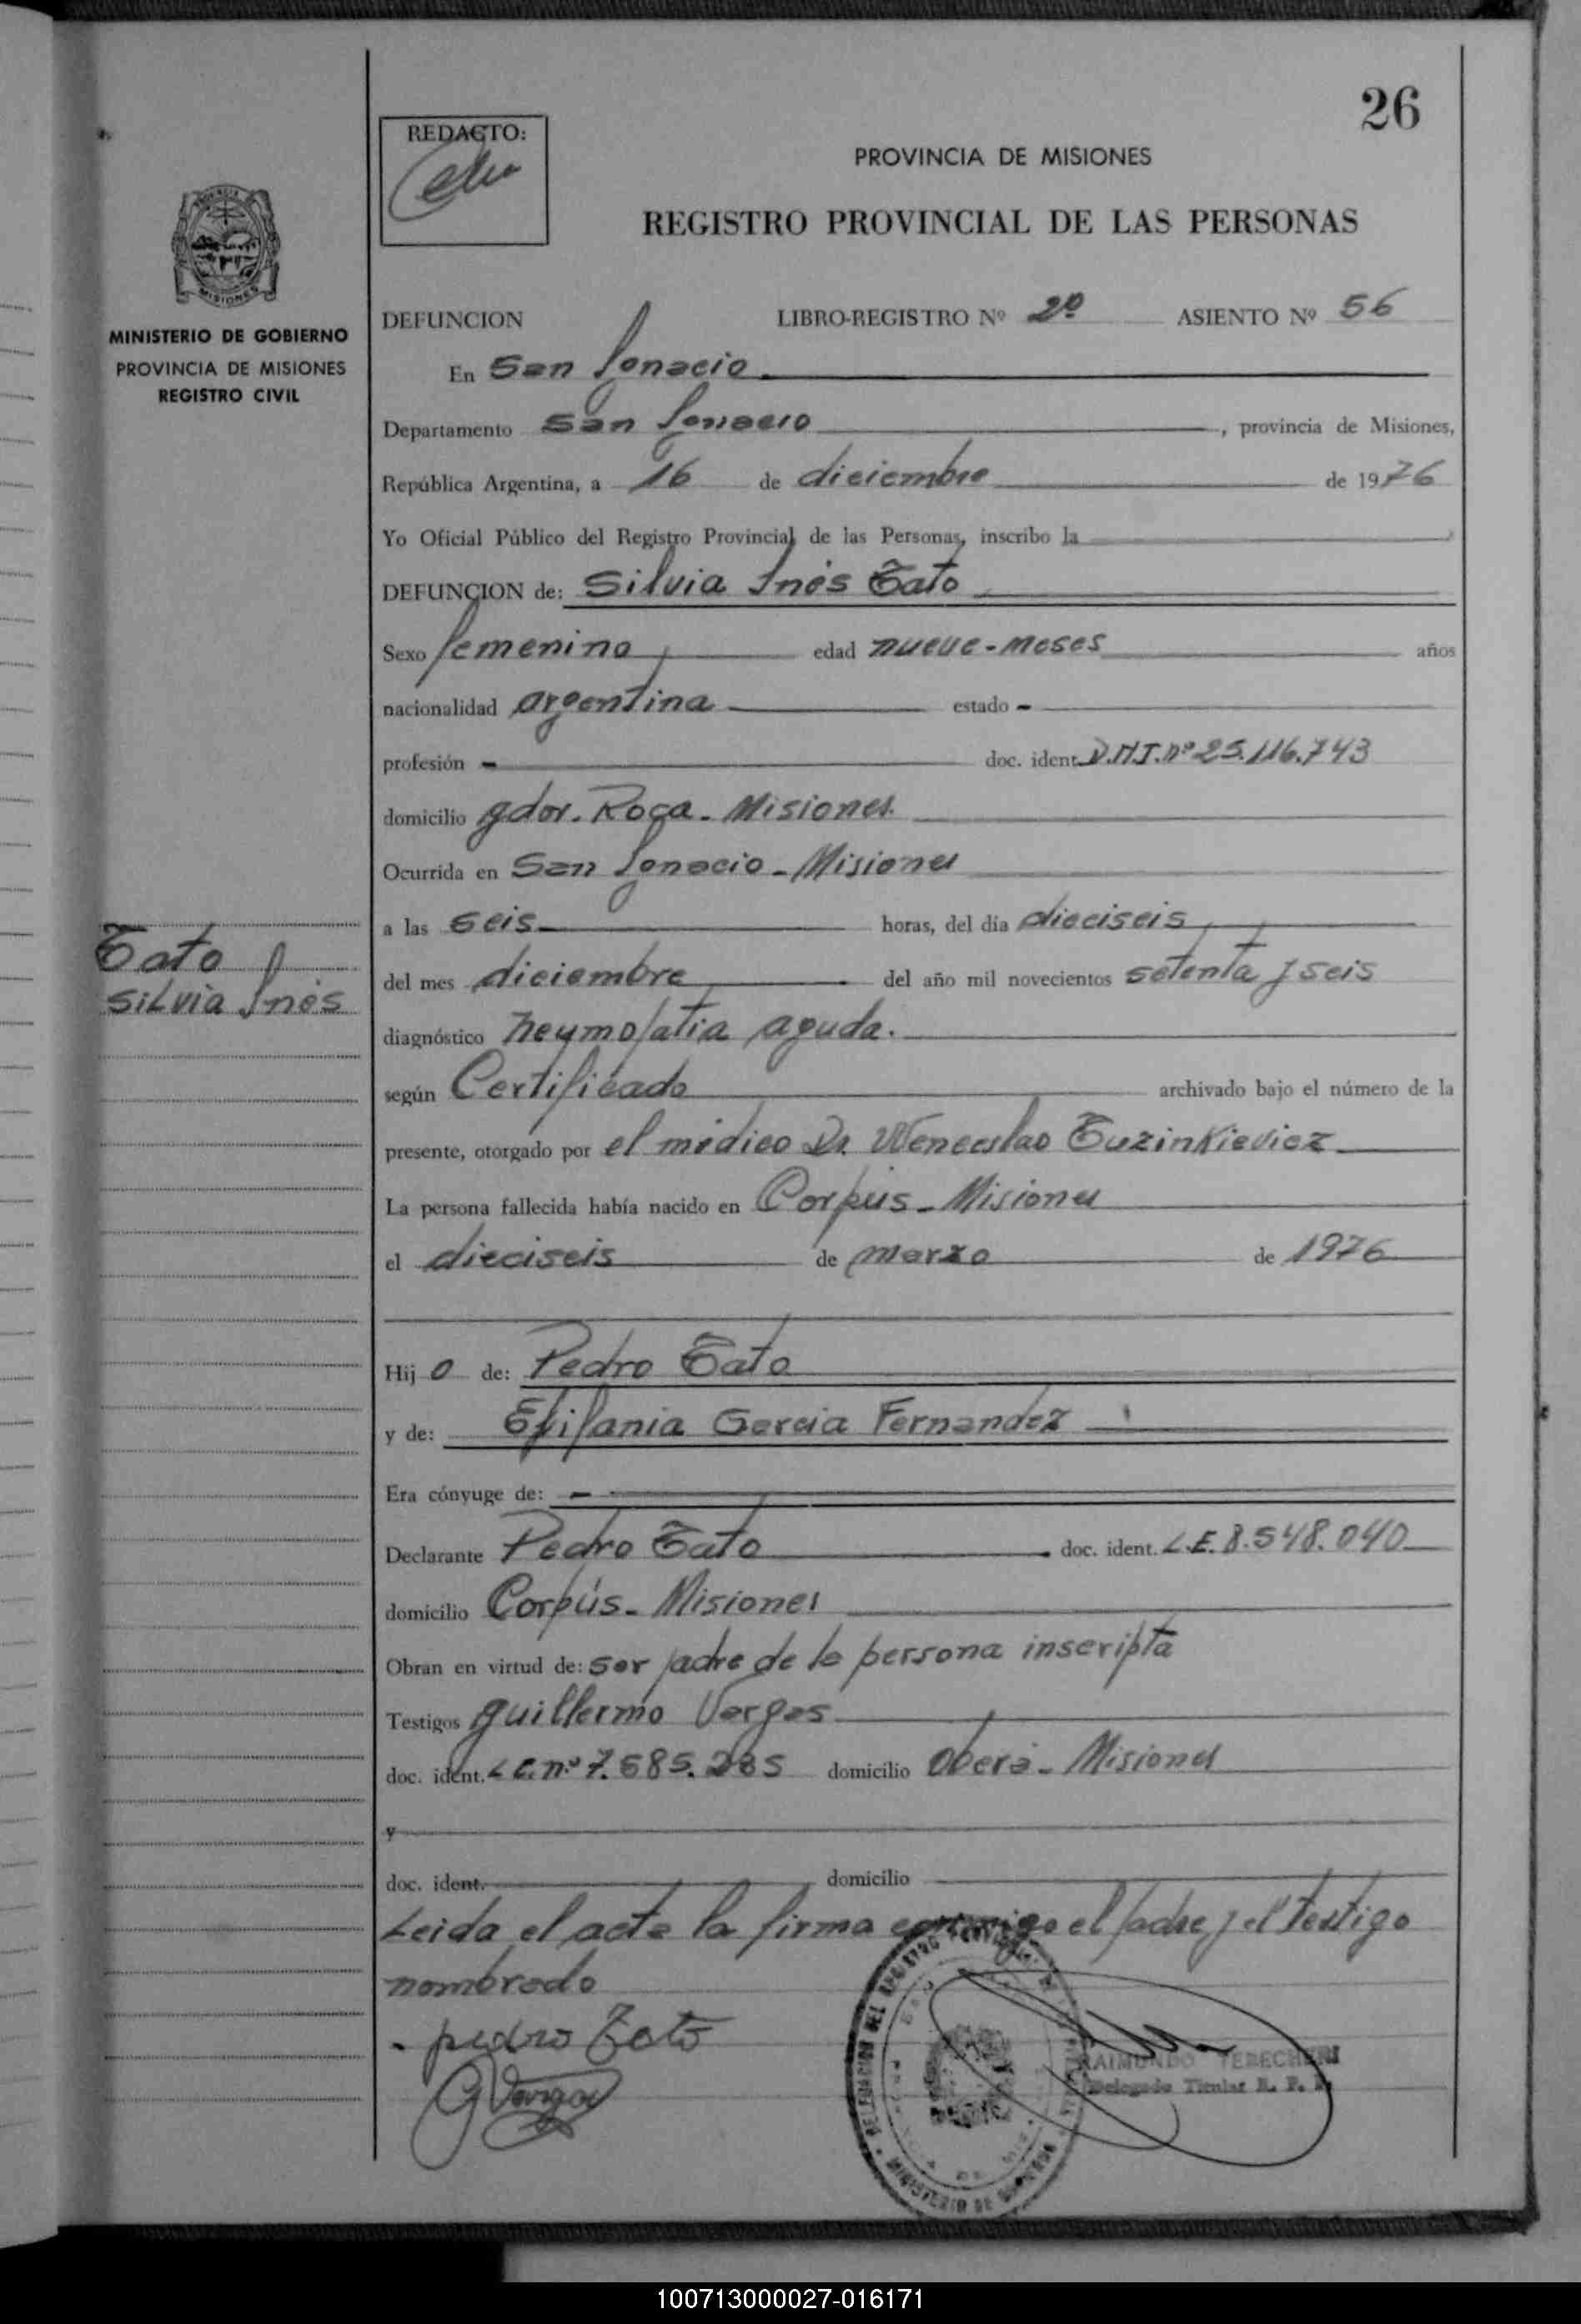 26
REDACTO:
PROVINCIA DE MISIONES
REGISTRO PROVINCIAL DE LAS PERSONAS
MISIONES
MINISTERIO DE GOBIERNO
PROVINCIA DE MISIONES
REGISTRO CIVIL
DEFUNCION LIBRO-REGISTRO Nº 2º ASIENTO Nº 56
En San Ignacio
Departamento San Ignacio, provincia de Misiones,
República Argentina, a 16 de diciembre de 1976
Yo Oficial Público del Registro Provincial de las Personas, inscribo la
DEFUNCION de: Silvia Inés Tato
Sexo femenino edad nueve-meses años
nacionalidad argentina estado -
profesión - doc. ident. D.N.I. nº 25.116.743
domicilio gdor. Roca - Misiones
Ocurrida en San Ignacio - Misiones
a las seis horas, del día dieciseis
del mes diciembre del año mil novecientos setenta y seis
Tato
Silvia Inés
diagnóstico neumopatia aguda.
según Certificado archivado bajo el número de la
presente, otorgado por el médico Dr. Wenceslao Tuzinkievicz
La persona fallecida había nacido en Corpus - Misiones
el dieciseis de marzo de 1976
Hij o de: Pedro Tato
y de: Epifania Garcia Fernandez
Era cónyuge de: -
Declarante Pedro Tato doc. ident. L.E. 8.548.040
domicilio Corpús - Misiones
Obran en virtud de: ser padre de la persona inscripta
Testigos guillermo Vargas
doc. ident. nº 7.685.285 domicilio Oberá - Misiones
y
doc. ident. domicilio
Leida el acta la firma conmigo el padre y el testigo
nombrado
pedro Tato
GVargas
RAIMUNDO
Delegado Titular R. P. P.
100713000027-016171